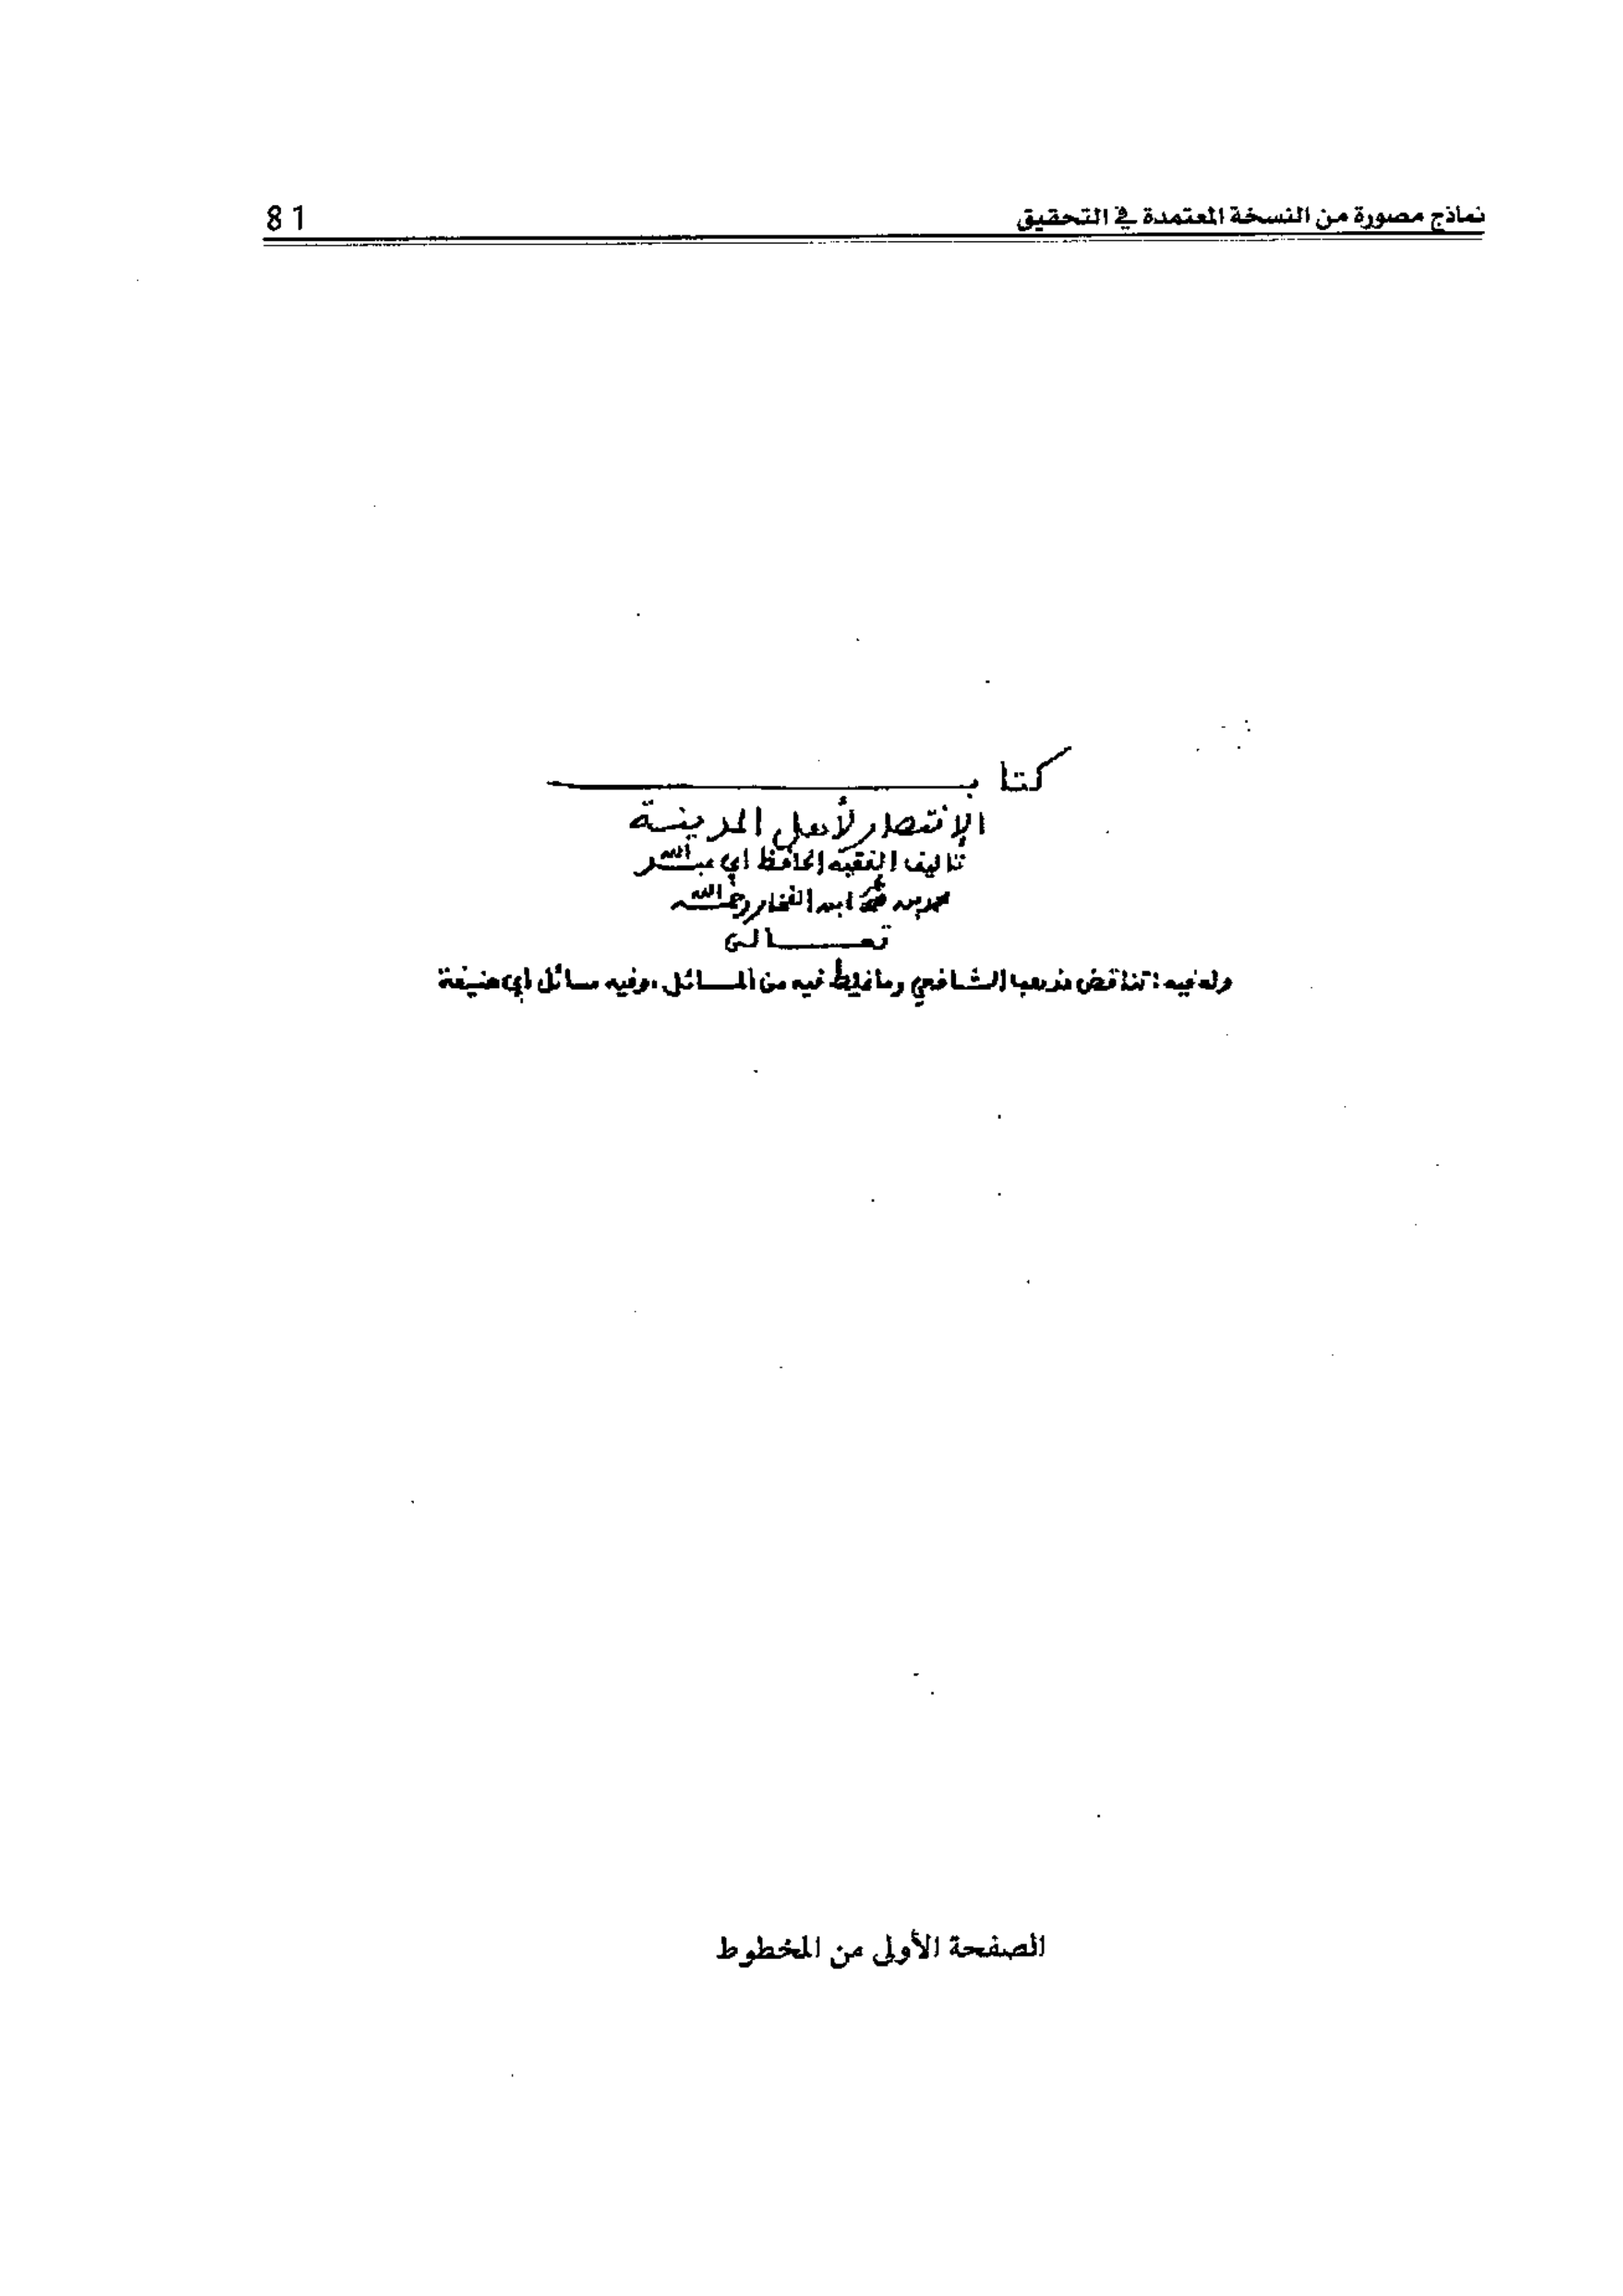 نماذج مصورة من النسخة المعتمدة في التحقيق
81
كتاب
الإنتصار لأهل المدينة
تأليف الفقيه الحافظ أبي عبد الله
محمد بن عمر ابن الفخار رحمه الله
تعالى
وله فيه: تناقض مذهب الشافعي وما غلط فيه من المسائل، وفيه مسائل أبي حنيفة
الصفحة الأولى من المخطوط